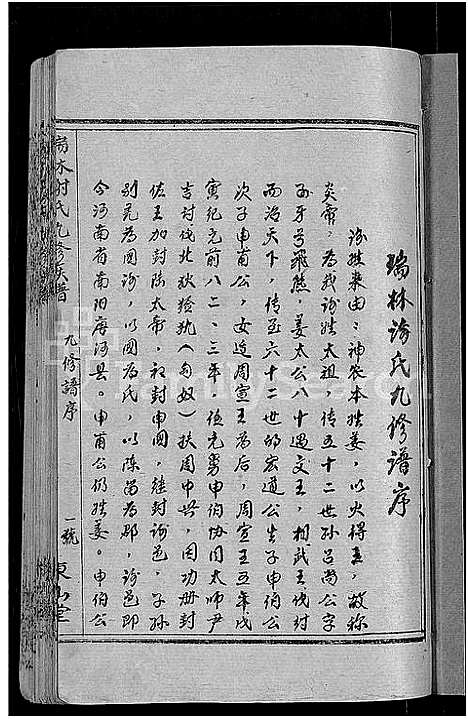 瑞林谢氏九修谱序
谢姓来由：神农本姓姜，以火得王，故称
炎帝，为我谢姓太祖，传五十二世孙吕尚公字
子牙号飛熊，姜太公八十遇文王，相武王伐纣
而治天下，传至六十二世邰宏道公生子申伯公
次子申甫公，女适周宣王为后，周宣王五年戊
寅纪元前八二、三年，伍元舅申伯协同太师尹
吉討伐北狄猃狁（匈奴）扶周中兴，因功册封
佐王加封陈太帝，初封申國，继封谢邑，子孙
别 为國谢，以國为氏，以陈留为郡，谢邑即
今河南省南阳唐河县。申甫公仍姓姜。申伯公
氏九修族譜 九修譜序 一號 東山堂